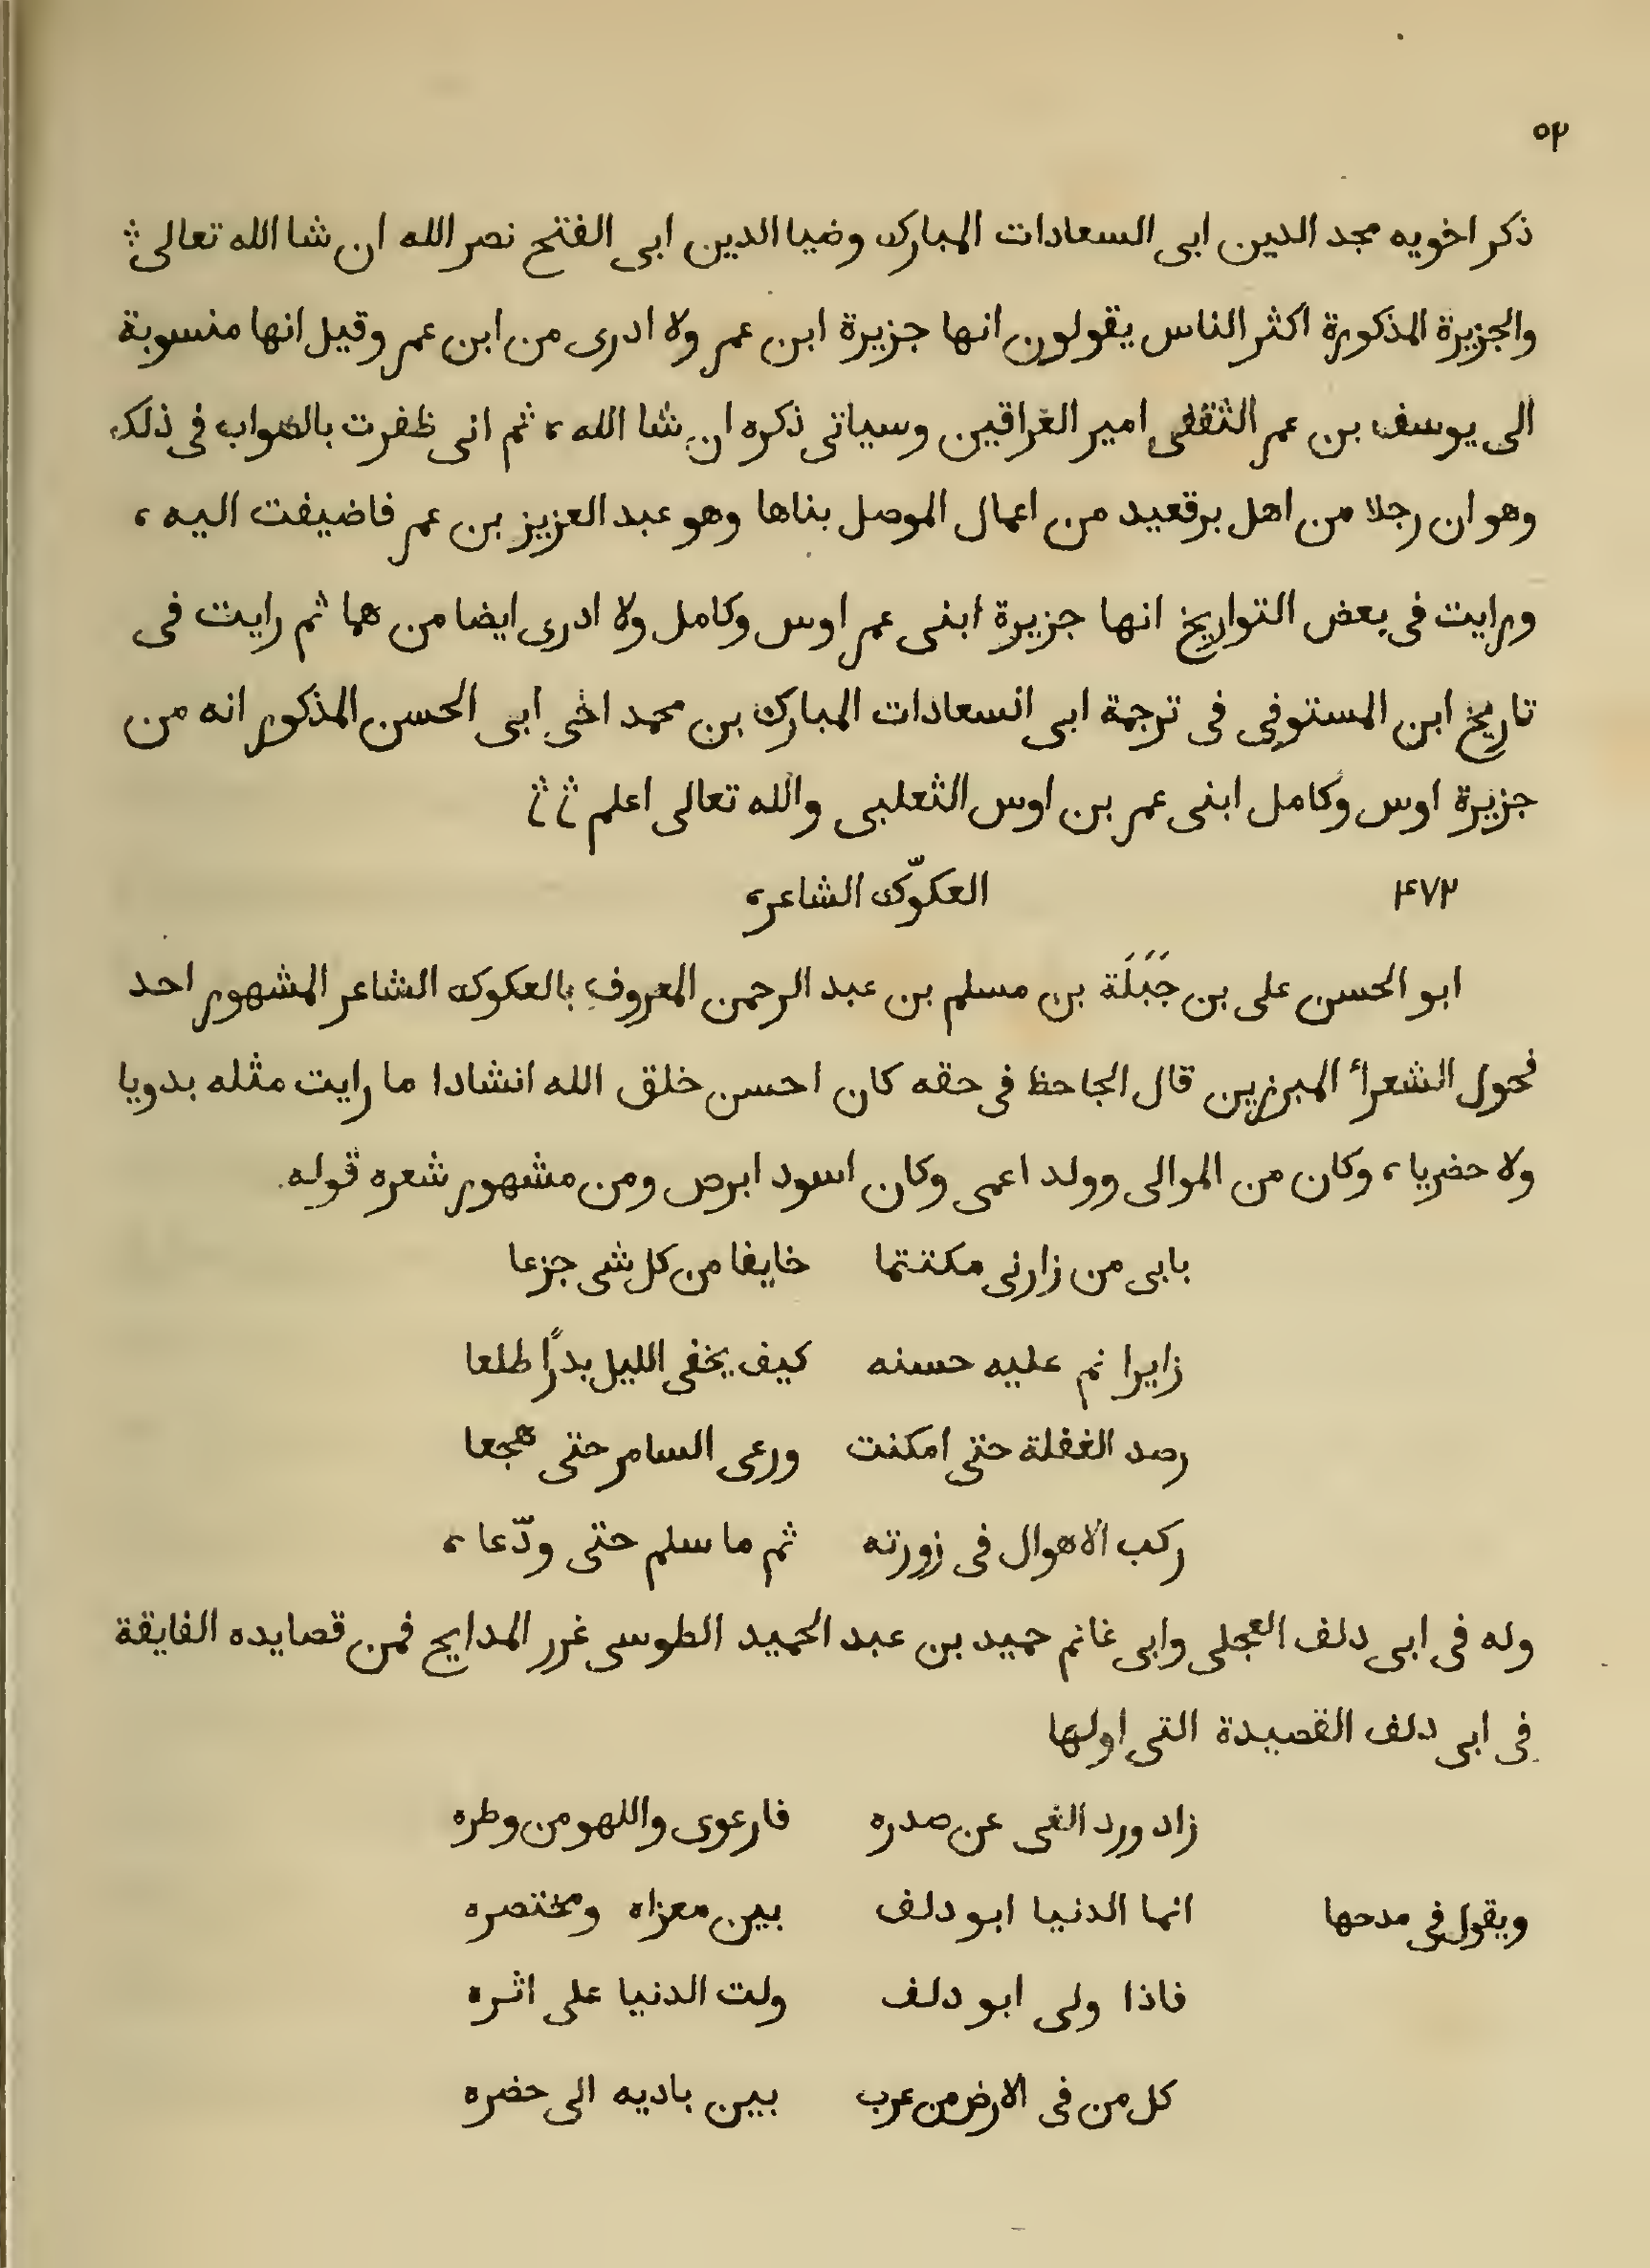 ٥٢
ذكر اخويه مجد الدين ابى السعادات المبارك وضيا الدين ابى الفتح نصر الله ان شا الله تعالى
والجزيرة المذكورة اكثر الناس يقولون انها جزيرة ابن عمر ولا ادرى من ابن عمر وقيل انها منسوبة
الى يوسف بن عمر الثقفى امير العراقين وسياتى ذكره ان شا الله، ثم انى ظفرت بالصواب فى ذلك
وهو ان رجلا من اهل برقعيد من اعمال الموصل بناها وهو عبد العزيز بن عمر فاضيفت اليه،
ورايت فى بعض التواريخ انها جزيرة ابنى عمر اوس وكامل ولا ادرى ايضا من هما ثم رايت فى
تاريخ ابن المستوفى فى ترجمة ابى السعادات المبارك بن محمد اخى ابى الحسن المذكور انه من
جزيرة اوس وكامل ابنى عمر بن اوس الثعلبى والله تعالى اعلم
٤٧٢ العكوّك الشاعر،
ابو الحسن على بن جَبَلَة بن مسلم بن عبد الرحمن المعروف بالعكوك الشاعر المشهور احد
فحول الشعرأ المبرزين قال الجاحظ فى حقه كان احسن خلق الله انشادا ما رايت مثله بدويا
ولا حضريا، وكان من الموالى وولد اعمى وكان اسود ابرص ومن مشهور شعره قوله
بابى من زارنى مكتتما خايفا من كل شى جزعا
زايرا نم عليه حسنه كيف يخفى الليل بدرًا طلعا
رصد الغفلة حتى امكنت ورعى السامر حتى هجعا
ركب الاهوال فى زورته ثم ما سلم حتى ودّعا،
وله فى ابى دلف العجلى وابى غانم حميد بن عبد الحميد الطوسى غرر المدايح فمن قصايده الفايقة
فى ابى دلف القصيدة التى اولها
زاد ورد الغى عن صدره فارعوى واللهو من وطره
ويقول فى مدحها انما الدنيا ابو دلف بين معزاه ومختصره
فاذا ولى ابو دلف ولت الدنيا على اثره
كل من فى الارض من عرب بين باديه الى حضره